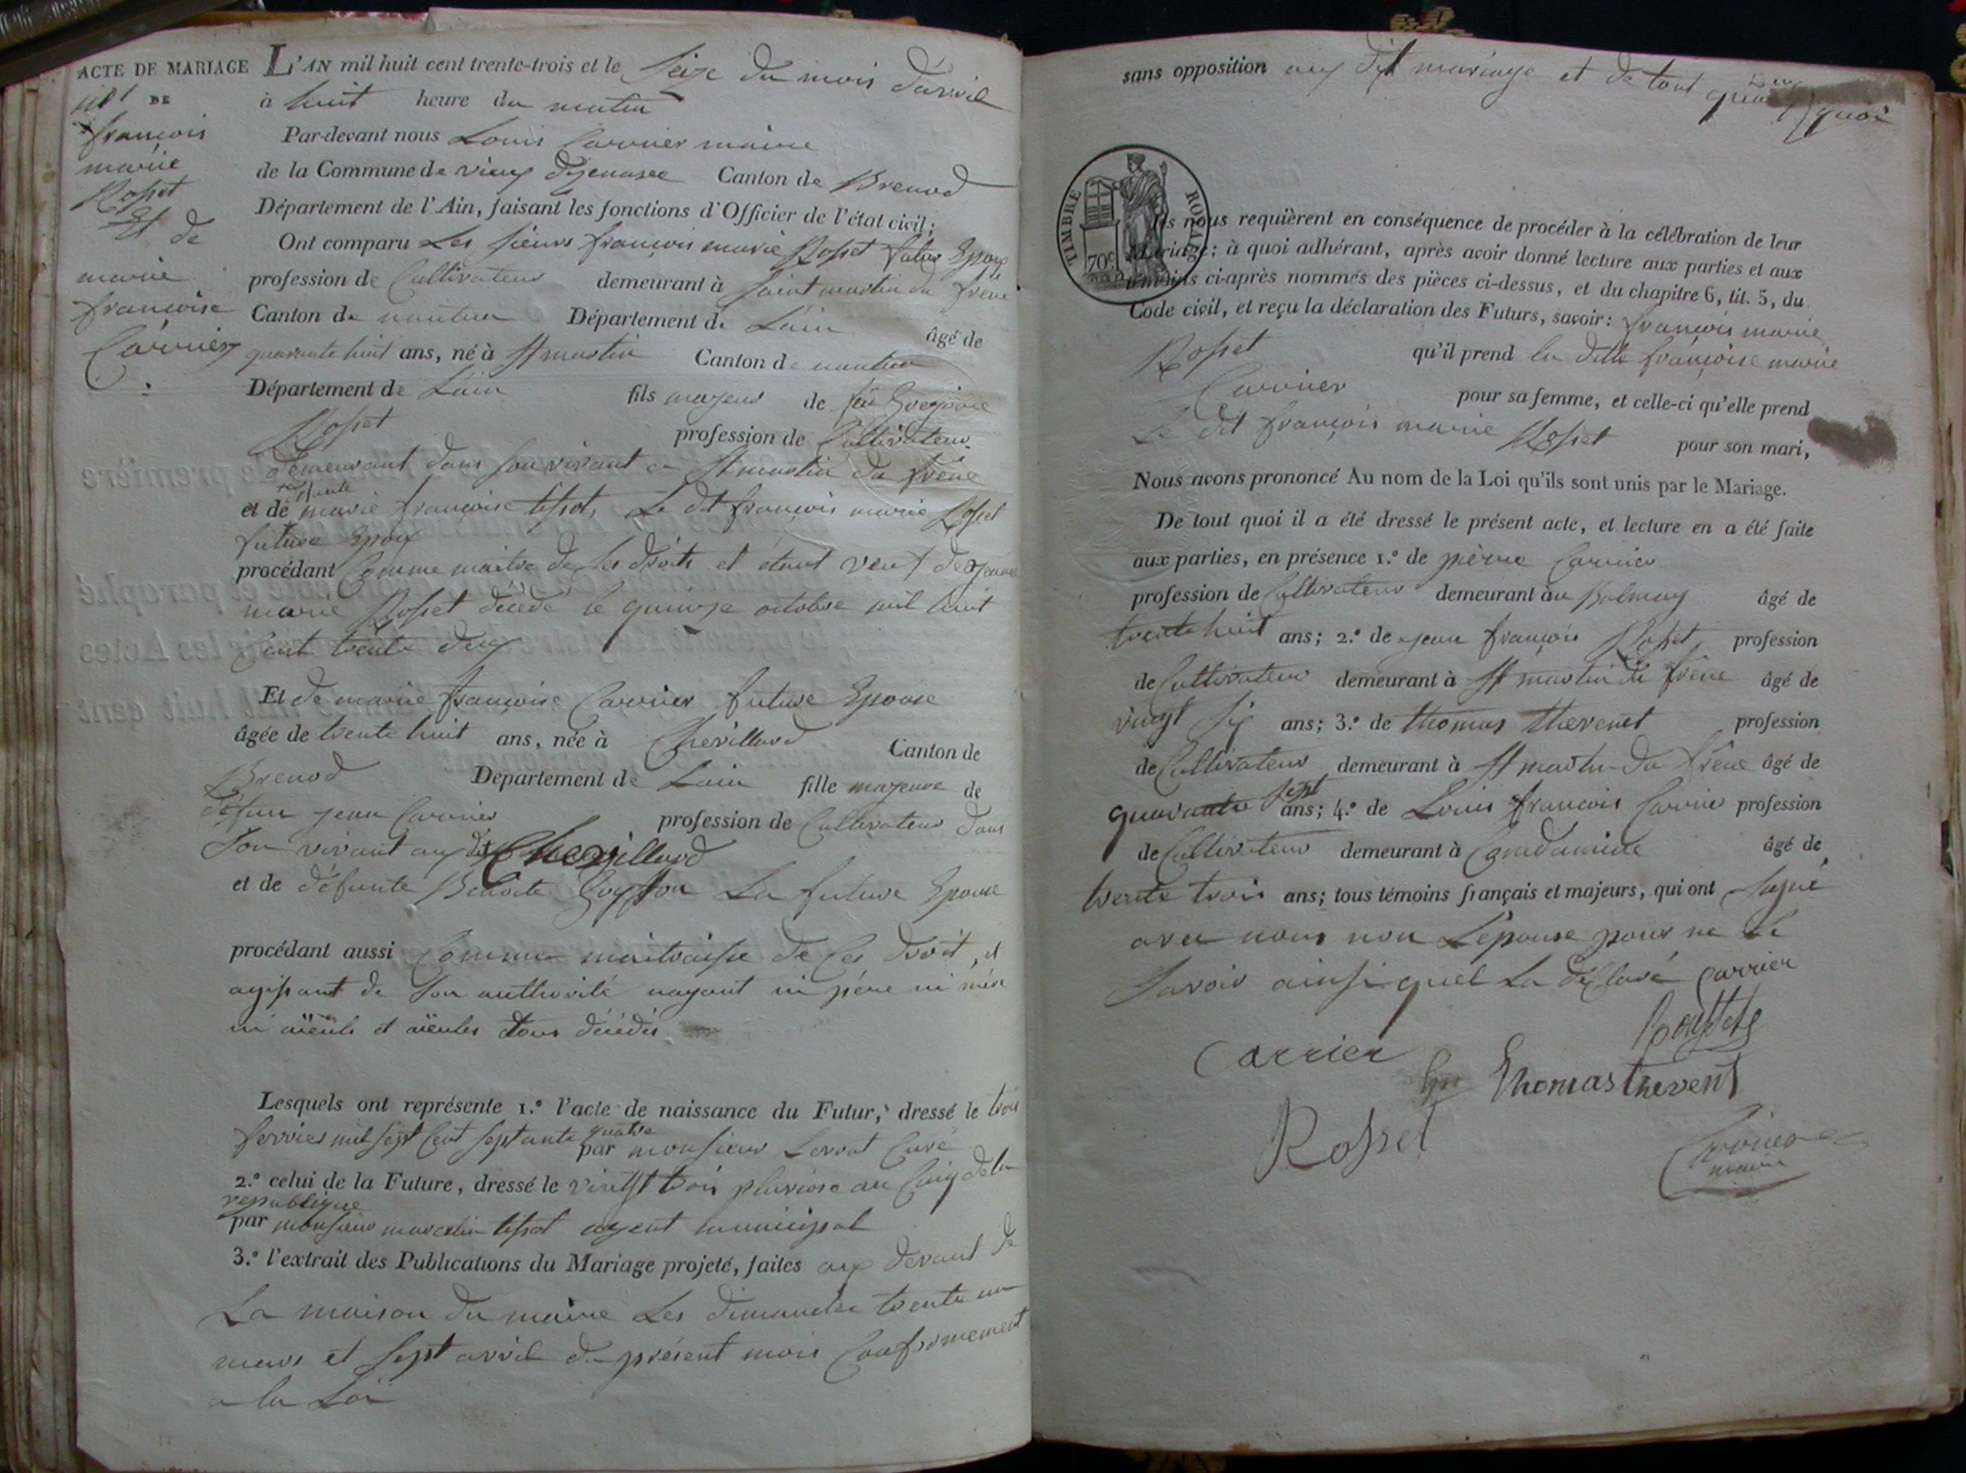 ACTE DE MARIAGE
DE
françois
marie
Rosset
Et de
marie
françoise
Carrier
L'AN mil huit cent trente-trois et le Seize du mois d'avril
à huit heure du matin
Par-devant nous Louis Carrier maire
de la Commune de vieux d'izenave Canton de Brenod
Département de l'Ain, faisant les fonctions d'Officier de l'état civil;
Ont comparu Les sieurs françois marie Rosset futur Epoux
profession de Cultivateur demeurant à saint martin du frêne
Canton de nantua Département de Lain âgé de
quarante huit ans, né à St martin Canton de nantua
Département de Lain fils majeur de feu Gregoire
Rosset profession de Cultivateur
demeurant dans son vivant a St martin du frêne
et de defunte marie françoise tissot, Le dit françois marie Rosset
future Epoux
procédant Comme maitre de ses droits et étant veuf de jeanne
marie Rosset décédé le quinze octobre mil huit
Cent trente deux
Et de marie françoise Carrier future Epouse
âgée de trente huit ans, née à Chevillard Canton de
Brenod Departement de Lain fille majeure de
defun jean Carrier profession de Cultivateur dans
Son vivant au dit Chevillard
et de défunte Benoite La future Epouse
procédant aussi Comme maitraisse de Ces droit, et
agissant de Son authorité nayant ni père ni mère
ni aïeuls et aïeules tous décédés
Lesquels ont représente 1.° l'acte de naissance du Futur, dressé le trois
ferrier mil sept Cent septante quatre par monsieur Curé
2.° celui de la Future, dressé le vingt trois pluviose an Cinq de la
republique
par monsieur marcelin tissot agent municipal
3.° l'extrait des Publications du Mariage projeté, faites aux devant de
La maison du maire Les dimanches trente un
mars et Sept avril du présent mois Conformement
a la Loi
sans opposition aux dit mariage et de tout quoi
TIMBRE ROYAL
70c
Ils nous requièrent en conséquence de procéder à la célébration de leur
Mariage: à quoi adhérant, après avoir donné lecture aux parties et aux
témoins ci-après nommés des pièces ci-dessus, et du chapitre 6, tit. 5, du
Code civil, et reçu la déclaration des Futurs, savoir: françois marie
Rosset qu'il prend la dite françoise marie
Carrier pour sa femme, et celle-ci qu'elle prend
Le dit françois marie Rosset pour son mari,
Nous avons prononcé Au nom de la Loi qu'ils sont unis par le Mariage.
De tout quoi il a été dressé le présent acte, et lecture en a été faite
aux parties, en présence 1.° de pierre Carrier
profession de Cultivateur demeurant au Balmay âgé de
trente huit ans; 2.° de jean françois Rosset, profession
de Cultivateur demeurant à St martin du frêne âgé de
vingt six ans; 3.° de thomas thevenet profession
de Cultivateur demeurant à St martin du frêne âgé de
quarante sept ans; 4.° de Louis françois Carrier profession
de Cultivateur demeurant à Condamine âgé de
trente trois ans; tous témoins français et majeurs, qui ont signé
avec nous non L'epouse pour ne le
Savoir ainsi quel La déclaré Carrier
Carrier
Thomas thevent
Rosset
Carrier
maire